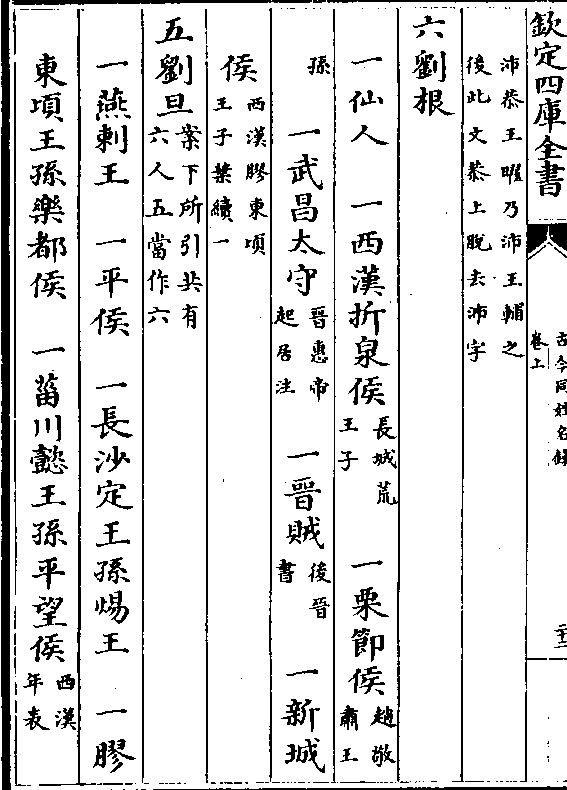 欽定四庫全書
古今同姓名錄
卷上
沛恭王曜乃沛王輔之
後此文恭上脫去沛字
六劉根
一仙人　一西漢折泉侯長城荒王子　一栗節侯趙敬肅王
孫　一武昌太守晉惠帝起居注　一晉賊後晉書　一新城
侯西漢膠東頃王子業續一
五劉旦案下所引共有六人五當作六
一燕剌王　一平侯　一長沙定王孫煬王　一膠
東頃王孫樂都侯　一菑川懿王孫平望侯西漢年表